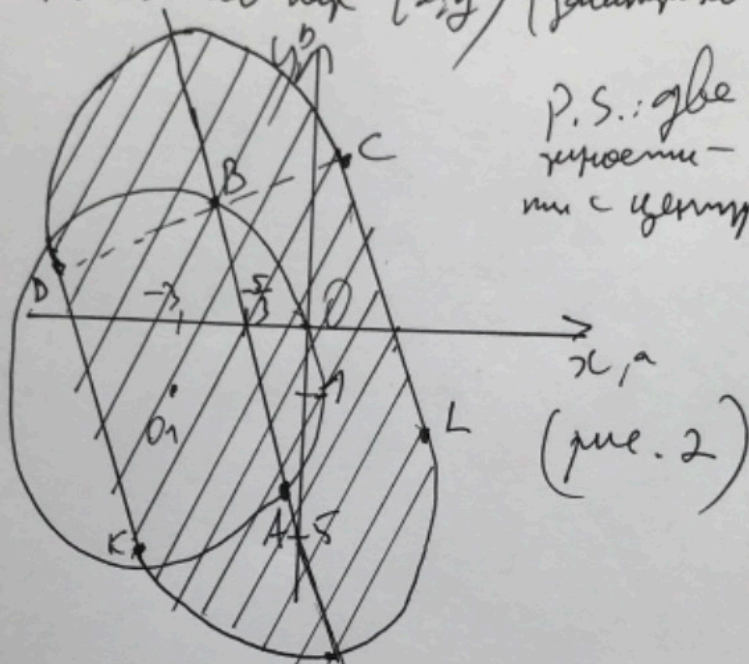 (x; y)
y, b
P.S.: две
ти с центр
C
B
D
-3
-5
3
O
x, a
-1
O₁
L
(рис. 2)
A
-5
K